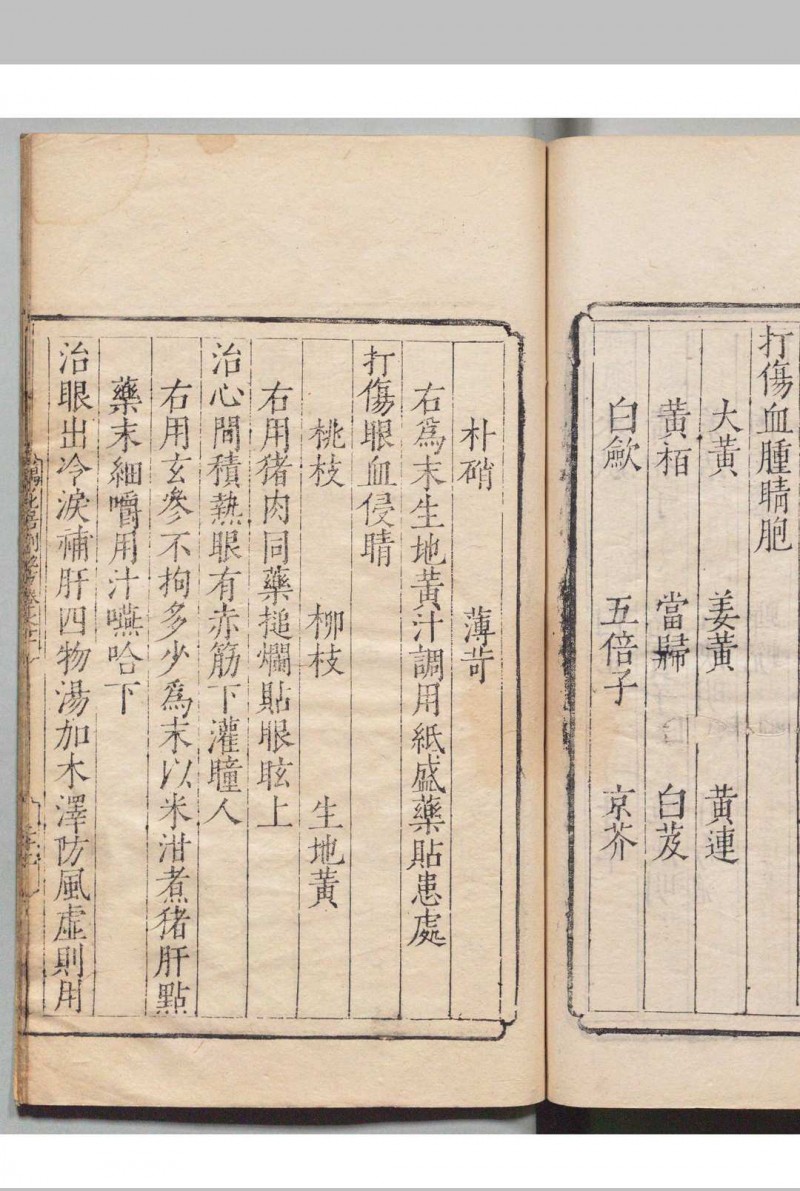 打傷血腫睛胞
大黃 姜黃 黃連
黃栢 當歸 白芨
白歛 五倍子 京芥
朴硝 薄苛
右爲末生地黃汁調用紙盛藥貼患處
打傷眼血侵睛
桃枝 柳枝 生地黃
右用猪肉同藥搥爛貼眼眩上
治心間積熱眼有赤筋下灌瞳人
右用玄參不拘多少爲末以米泔煮猪肝點
藥末細嚼用汁嚥哈下
治眼出冷淚補肝四物湯加木澤防風虛則用